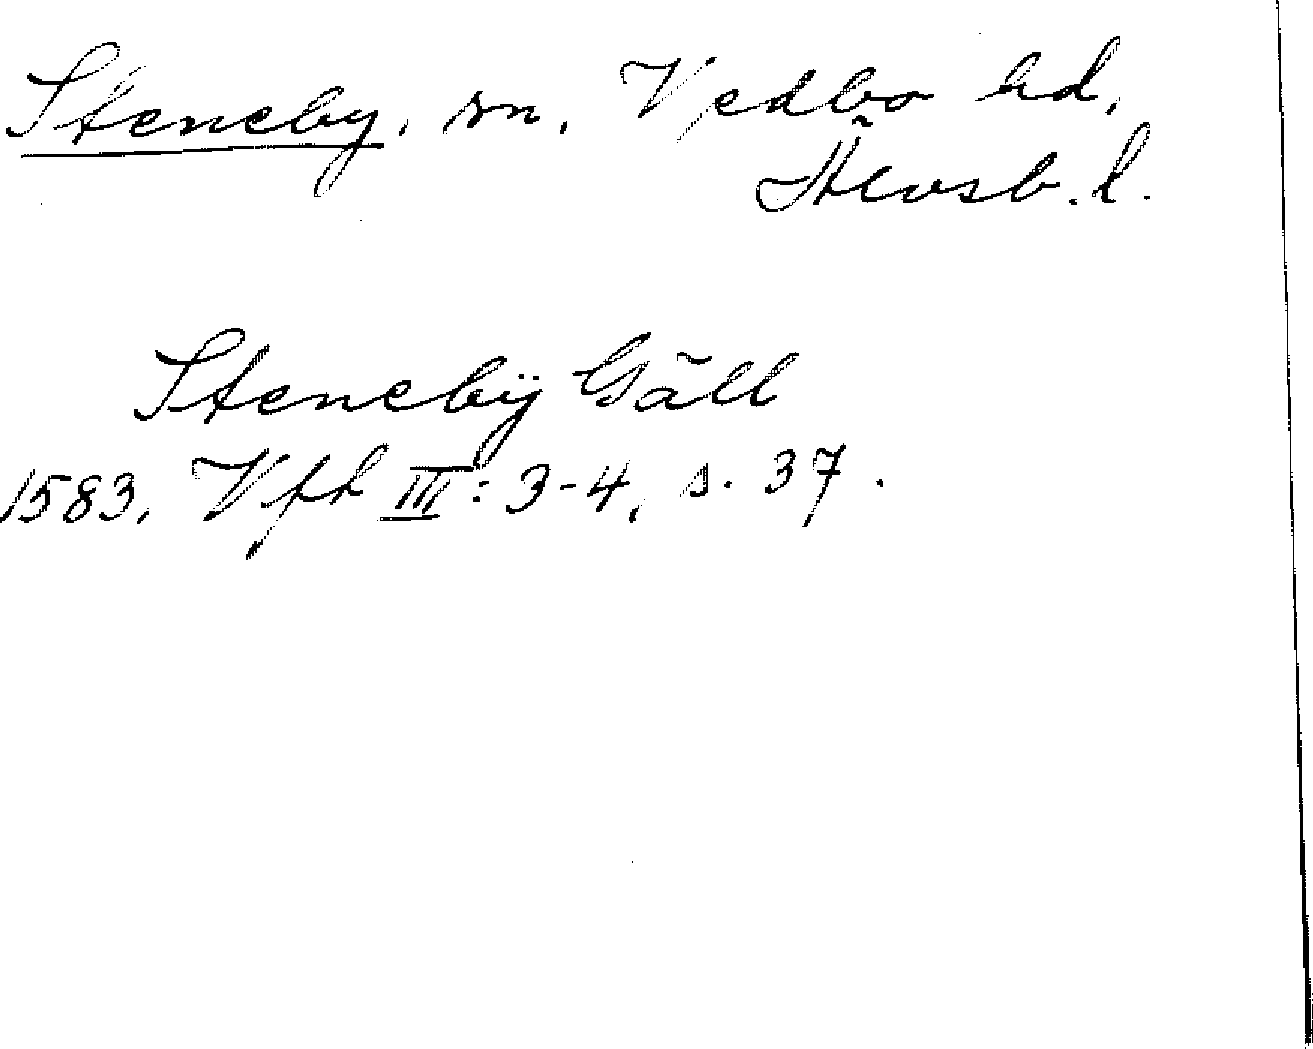 Steneby, sn, Vedbo hd,
Älvsb. l.
Stenebÿ Gäll
1583, Vfh III: 3-4, s. 37.